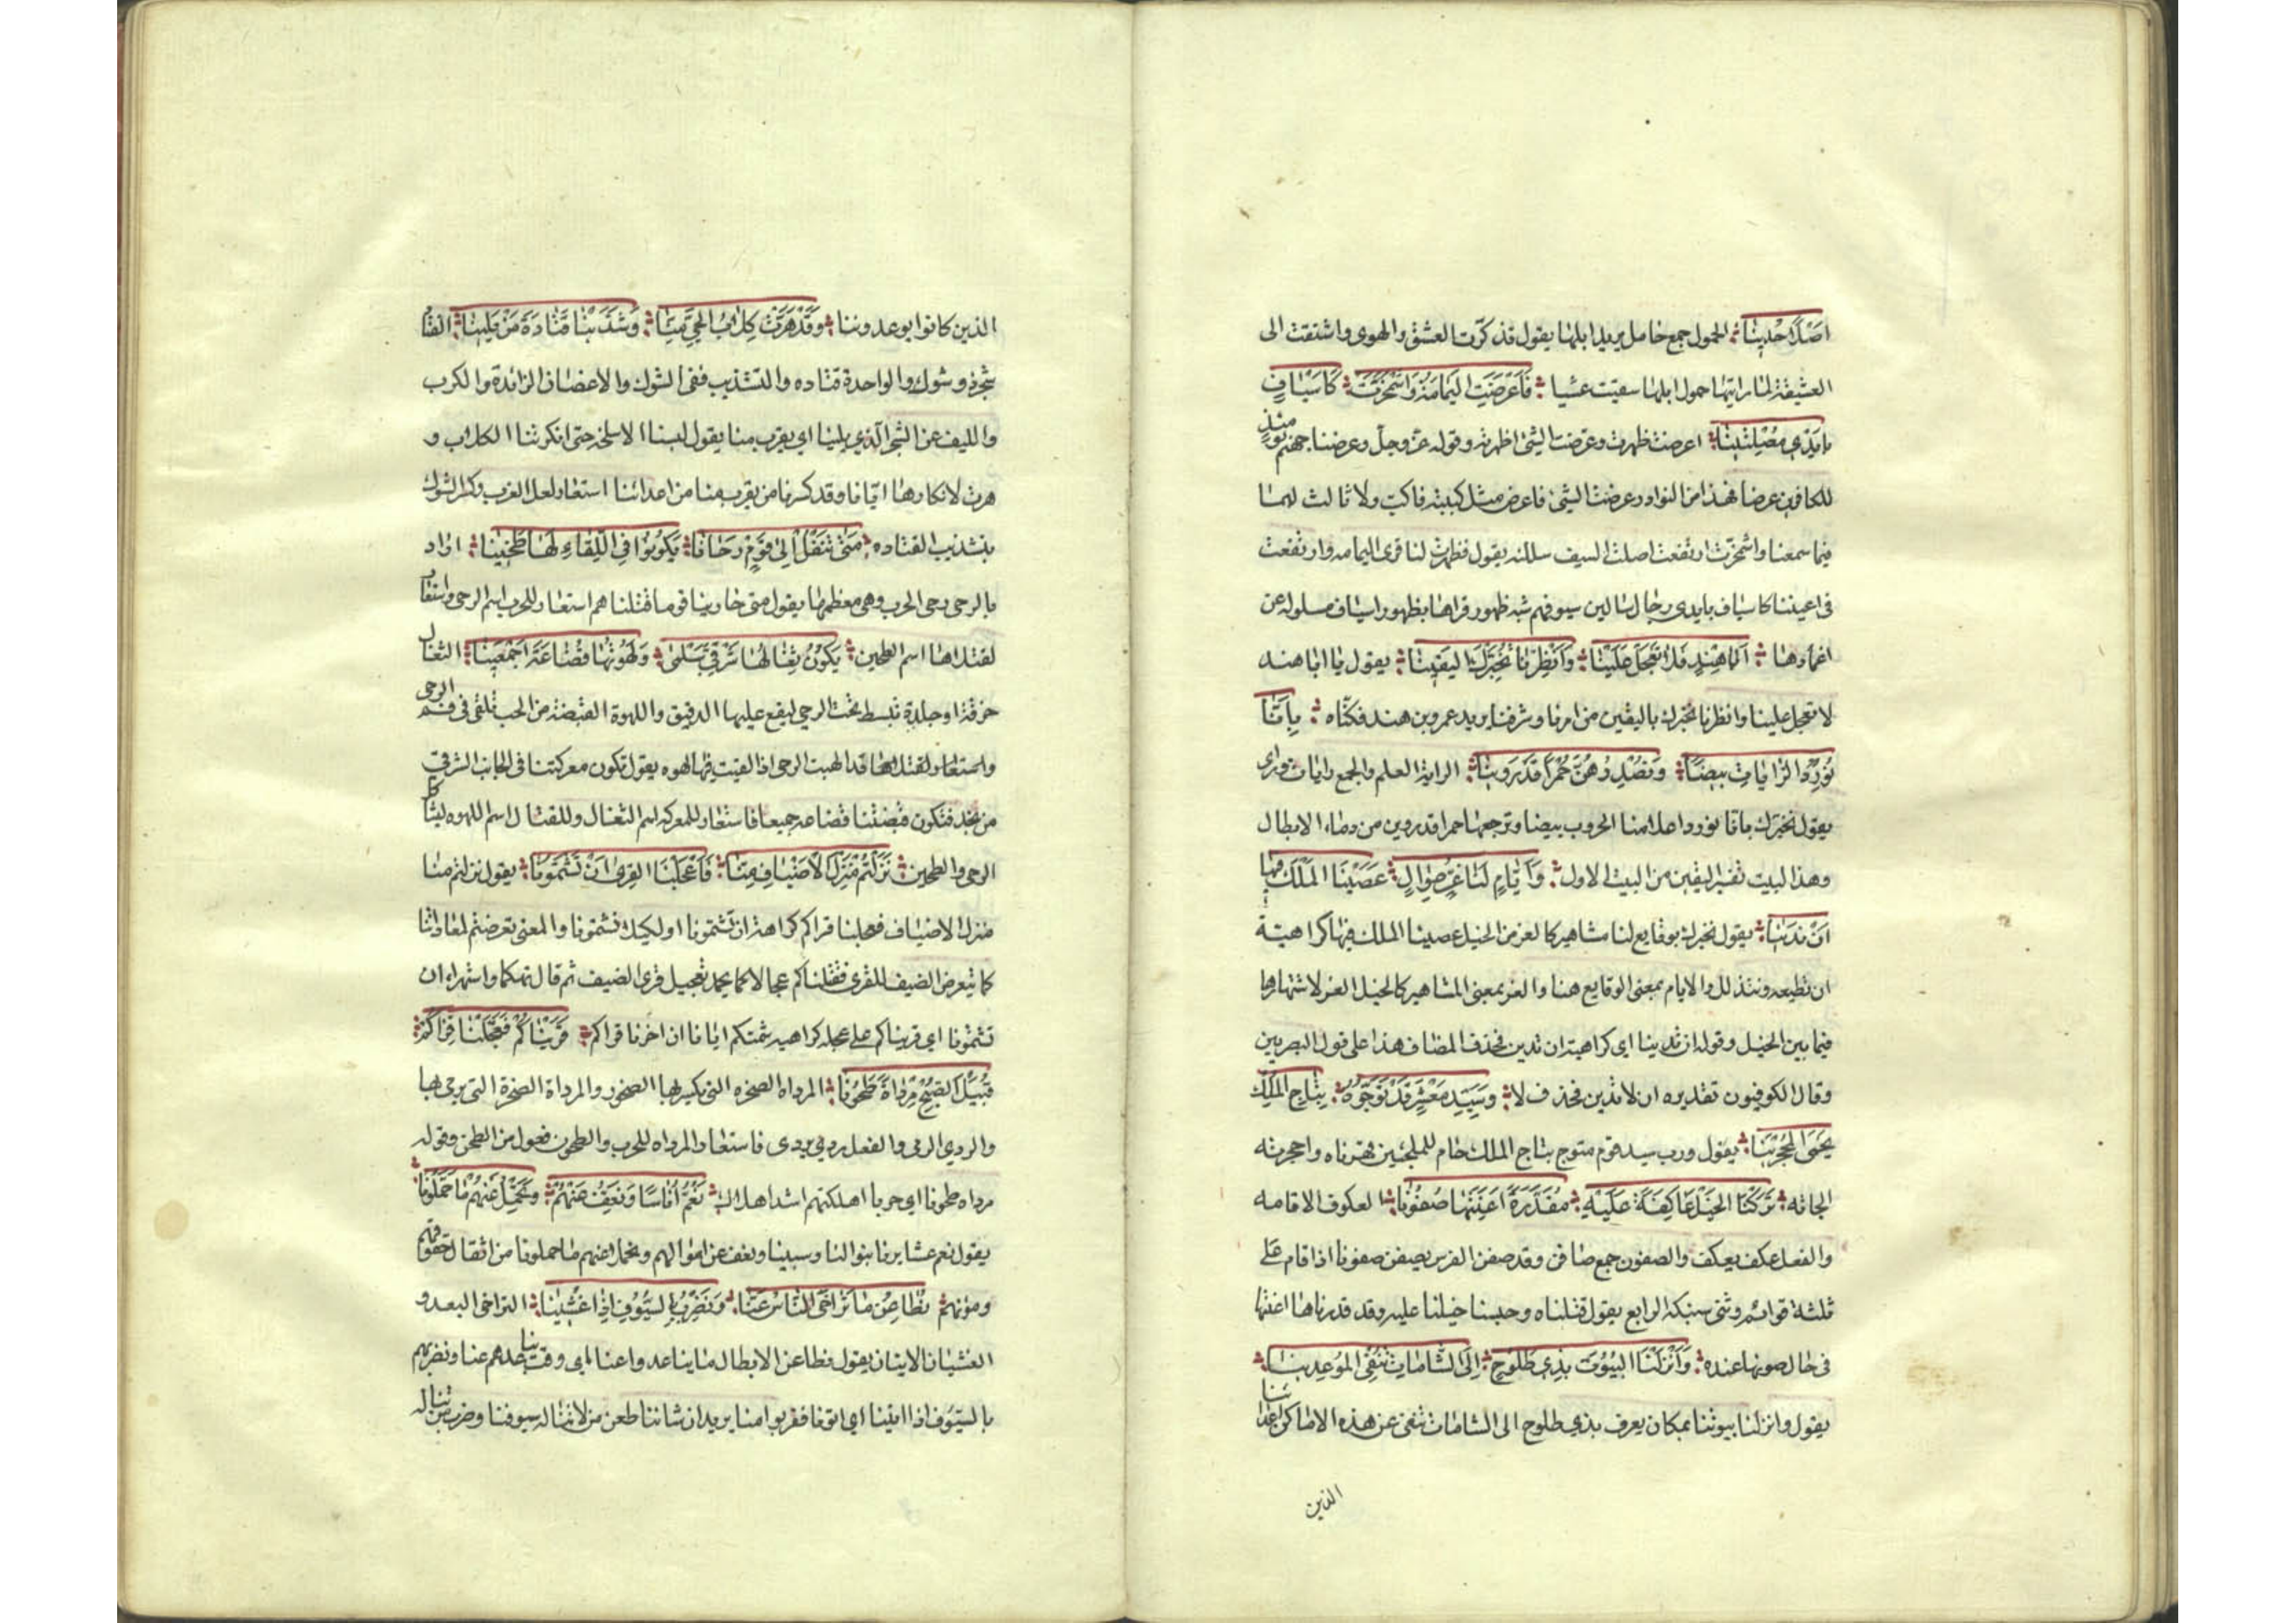 اصلا حدينا الحمول جمع حامل يريد ابلها يقول تذكرت العشق والهوى واشتقت الى
العشيقة لما رايتها حمول ابلها سقيت عشيا فَاَعْرَضَتِ اليَمَامَةُ وَاشْمَخَرَّتْ كَاَسْيَافٍ
بِاَيْدِي مُصْلِتِينَا اعرضت ظهرت وعرضت الشئ اظهرته وقوله عز وجل وعرضنا جهنم يومئذ
للكافرين عرضا فهذا من النوادر عرضت الشئ فاعرض مثل كببته فاكب ولا ثالث لهما
فيما سمعنا واشمخرت ارتفعت اصلت السيف سللته يقول فظهرت لنا قرى اليمامه وارتفعت
فى اعيننا كاسياف بايدى رجال سالين سيوفهم شبه ظهور قراها بظهور اسياف مسلوله عن
اغمادها اَبَا هِنْدٍ فَلَا تَعْجَلْ عَلَيْنَا وَاَنْظِرْنَا نُخَبِّرْكَ اليَقِينَا يقول يا ابا هند
لا تعجل علينا وانظرنا نخبرك باليقين من امرنا وشرفنا يريد عمرو بن هند فكناه بِاَنَّا
نُورِدُ الرَّايَاتِ بِيضًا وَنُصْدِرُهُنَّ حُمْرًا قَدْ رَوِينَا الراية العلم والجمع رايات وراى
يقول نخبرك باننا نورد اعلامنا الحروب بيضا ونرجعها حمرا قد روين من دماء الابطال
وهذا البيت تفسير اليقين من البيت الاول وَاَيَّامٍ لَنَا غُرٍّ طِوَالٍ عَصَيْنَا المَلْكَ فيها
اَنْ نَدِينَا يقول نخبرك بوقايع لنا مشاهير كالغر من الخيل عصينا الملك فيها كراهية
ان نطيعه ونتذلل والايام بمعنى الوقايع هنا والغر بمعنى المشاهير كالخيل الغر لاشتهارها
فيما بين الخيل وقوله ان ندينا اى كراهية ان ندين فحذف المضاف هذا على قول البصريين
وقال الكوفيون تقديره ان لا ندين فحذف لا وَسَيِّدِ مَعْشَرٍ قَدْ تَوَّجُوهُ بِتَاجِ المُلْكِ
يَحْمِى المُحْجَرِينَا يقول ورب سيد قوم متوج بتاج الملك حام للملجئين قهرناه واحجرته
الجاته تَرَكْنَا الخَيْلَ عَاكِفَةً عَلَيْهِ مُقَلَّدَةً اَعِنَّتَهَا صُفُونَا العكوف الاقامه
والفعل عكف يعكف والصفون جمع صافن وقد صفن الفرس يصفن صفونا اذا قام على
ثلثة قوائم وثنى سنبكه الرابع يقول قتلناه وحبسنا خيلنا عليه وقد قلدناها اعنتها
فى حال صونها عنده وَاَنْزَلْنَا البُيُوتَ بِذِي طُلُوحٍ اِلَى الشَّامَاتِ نَنْفِى المُوعِدِينَا
يقول وانزلنا بيوتنا بمكان يعرف بذي طلوح الى الشامات ننفى عن هذه الاماكن اعداءنا
الذين
الذين كانوا يوعدوننا وَقَدْ هَرَّتْ كِلَابُ الحَيِّ مِنَّا وَشَذَّبْنَا قَتَادَةَ مَنْ يَلِينَا القتاد
شجر ذو شوك والواحدة قتاده والتشذيب نفى الشوك والاغصان الزائدة والكرب
والليف عن الشجر الذي يلينا اي يقرب منا يقول لبسنا الاسلحة حتى انكرتنا الكلاب و
هرت لانكارها ايانا وقد كسرنا من يقرب منا من اعدائنا استعار لفل الغرب وكسر الشوك
بتشذيب القتاده مَتَى نَنْقُلْ اِلَى قَوْمٍ رَحَانَا يَكُونُوا فِي اللِّقَاءِ لَهَا طَحِينَا اراد
بالرحى رحى الحرب وهى معظمها يقول متى حاربنا قوما قتلناهم استعار للحرب اسم الرحى واستعار
لقتلاها اسم الطحين يَكُونُ ثِفَالُهَا شَرْقِيَّ سَلْمَى وَلُهْوَتُهَا قُضَاعَةَ اَجْمَعِينَا الثفال
خرقة او جلدة تبسط تحت الرحى ليقع عليها الدقيق واللهوة القبضة من الحب تلقى فى فم الرحى
واستعار لقتلاها قد الهبت الرحى اذا القيت فيها لهوه يقول تكون معركتنا فى الجانب الشرقى
من نجد فتكون قبضتنا قضاعه جميعا فاستعار للمعركه اسم الثفال وللقتال اسم اللهوه ليشاكل
الرحى والطحين نَزَلْتُمْ مَنْزِلَ الاَضْيَافِ مِنَّا فَاَعْجَلْنَا القِرَى اَنْ تَشْتُمُونَا يقول نزلتم منا
منزل الاضياف فعجلنا قراكم كراهة ان تشتمونا او لكيلا تشتمونا والمعنى تعرضتم لمعاداتنا
كما يتعرض الضيف للقرى فقتلناكم عجالا كما يحمد تعجيل قرى الضيف ثم قال تهكما واستهزاء ان
تشتمونا اي قريناكم على عجلة كراهيه شتمكم ايانا ان اخرنا قراكم قَرَيْنَاكُمْ فَعَجَّلْنَا قِرَاكُمْ
قُبَيْلَ الصُّبْحِ مِرْدَاةً طَحُونَا المرداه الصخره التى تكسر بها الصخور والمرداة الصخرة التى يرمى بها
والردي الرمى والفعل ردي يردى فاستعار المرداه للحرب والطحون فعول من الطحن وقوله
مرداه طحونا اي حربا اهلكتهم اشد اهلاك نَعُمُّ اُنَاسَنَا وَنَعِفُّ عَنْهُمْ وَنَحْمِلُ عَنْهُمُ مَا حَمَّلُونَا
يقول نعم عشايرنا بنوالنا وسبينا ونعف عن اموالهم ونحمل عنهم ما حملونا من اثقال حقوقهم
ومؤنهم نُطَاعِنُ مَا تَرَاخَى النَّاسُ عَنَّا وَنَضْرِبُ بِالسُّيُوفِ اِذَا غُشِينَا التراخى البعد و
الغشيان الاتيان يقول نطاعن الابطال ما يتباعدوا عنا اى وقت تباعدهم عنا ونضربهم
بالسيوف اذا اتينا اي اتونا فقربوا منا يريد ان شاننا طعن من لا تناله سيوفنا وضرب من تناله